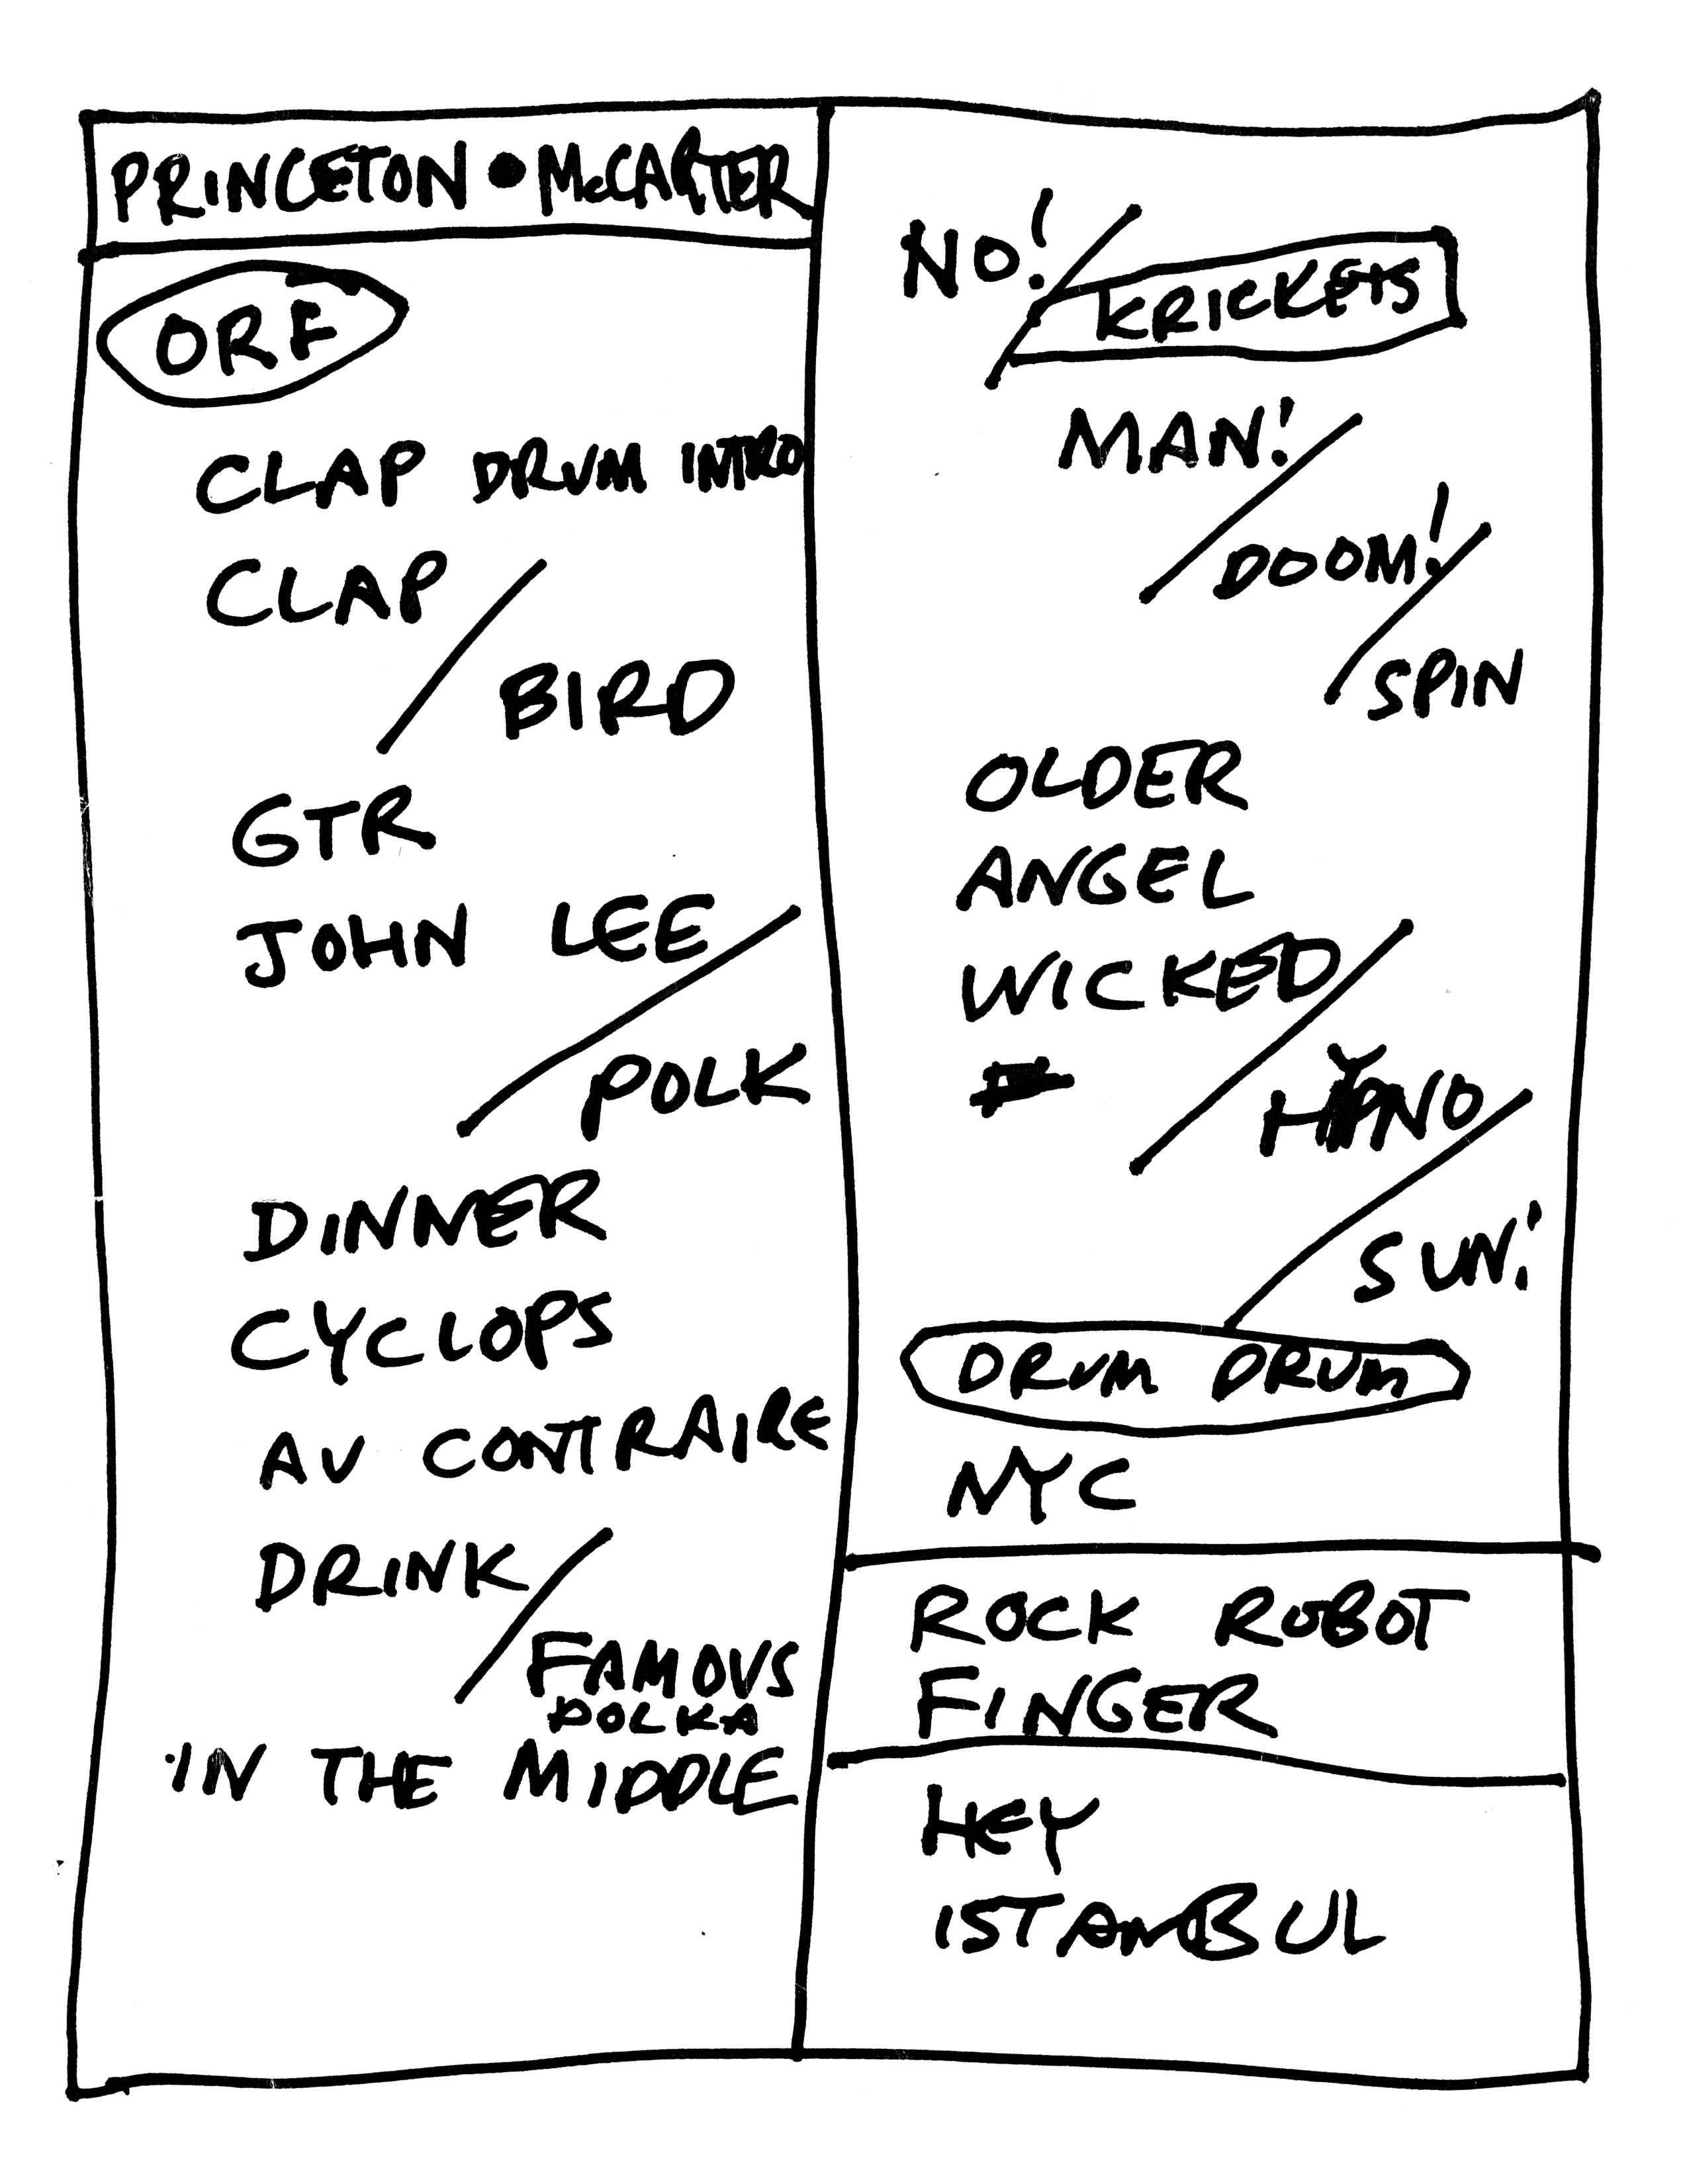 PRINCETON • McCARTER
ORF
CLAP DRUM INTRO
CLAP /
BIRD
GTR
JOHN LEE /
POLK
DINNER
CYCLOPS
AV CONTRAIRE
DRINK /
FAMOUS
POLKA
IN THE MIDDLE
NO! /
KRICKETS
MAN! /
DOOM! /
SPIN
OLDER
ANGEL
WICKED /
HYPNO /
SUN!
DRUM DRUM
NYC
ROCK ROBOT
FINGER
HEY
ISTANBUL